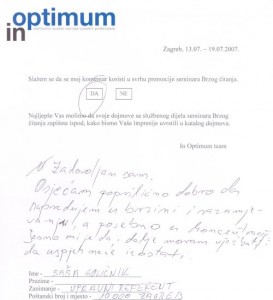 in optimum
Zagreb, 13.07. – 19.07.2007.
Slažem se da se moj komentar koristi u svrhu promocije seminara Brzog čitanja.
DA NE
Najljepše Vas molimo da svoje dojmove sa službenog dijela seminara Brzog
čitanja zapišete ispod, kako bismo Vaše impresije uvrstili u katalog dojmova.
In Optimum team
Zadovoljan sam.
Osjećam poprilično dobro da
napredujem u brzini i razumije-
vanju, a posebno u koncentraciji.
Jasno mi je da i dalje moram vježbati
da uspjeh neće izostati.
Ime - SAŠA
Prezime -
Zanimanje - UPRAVNI REFERENT
Poštanski broj i mjesto - 10000 ZAGREB